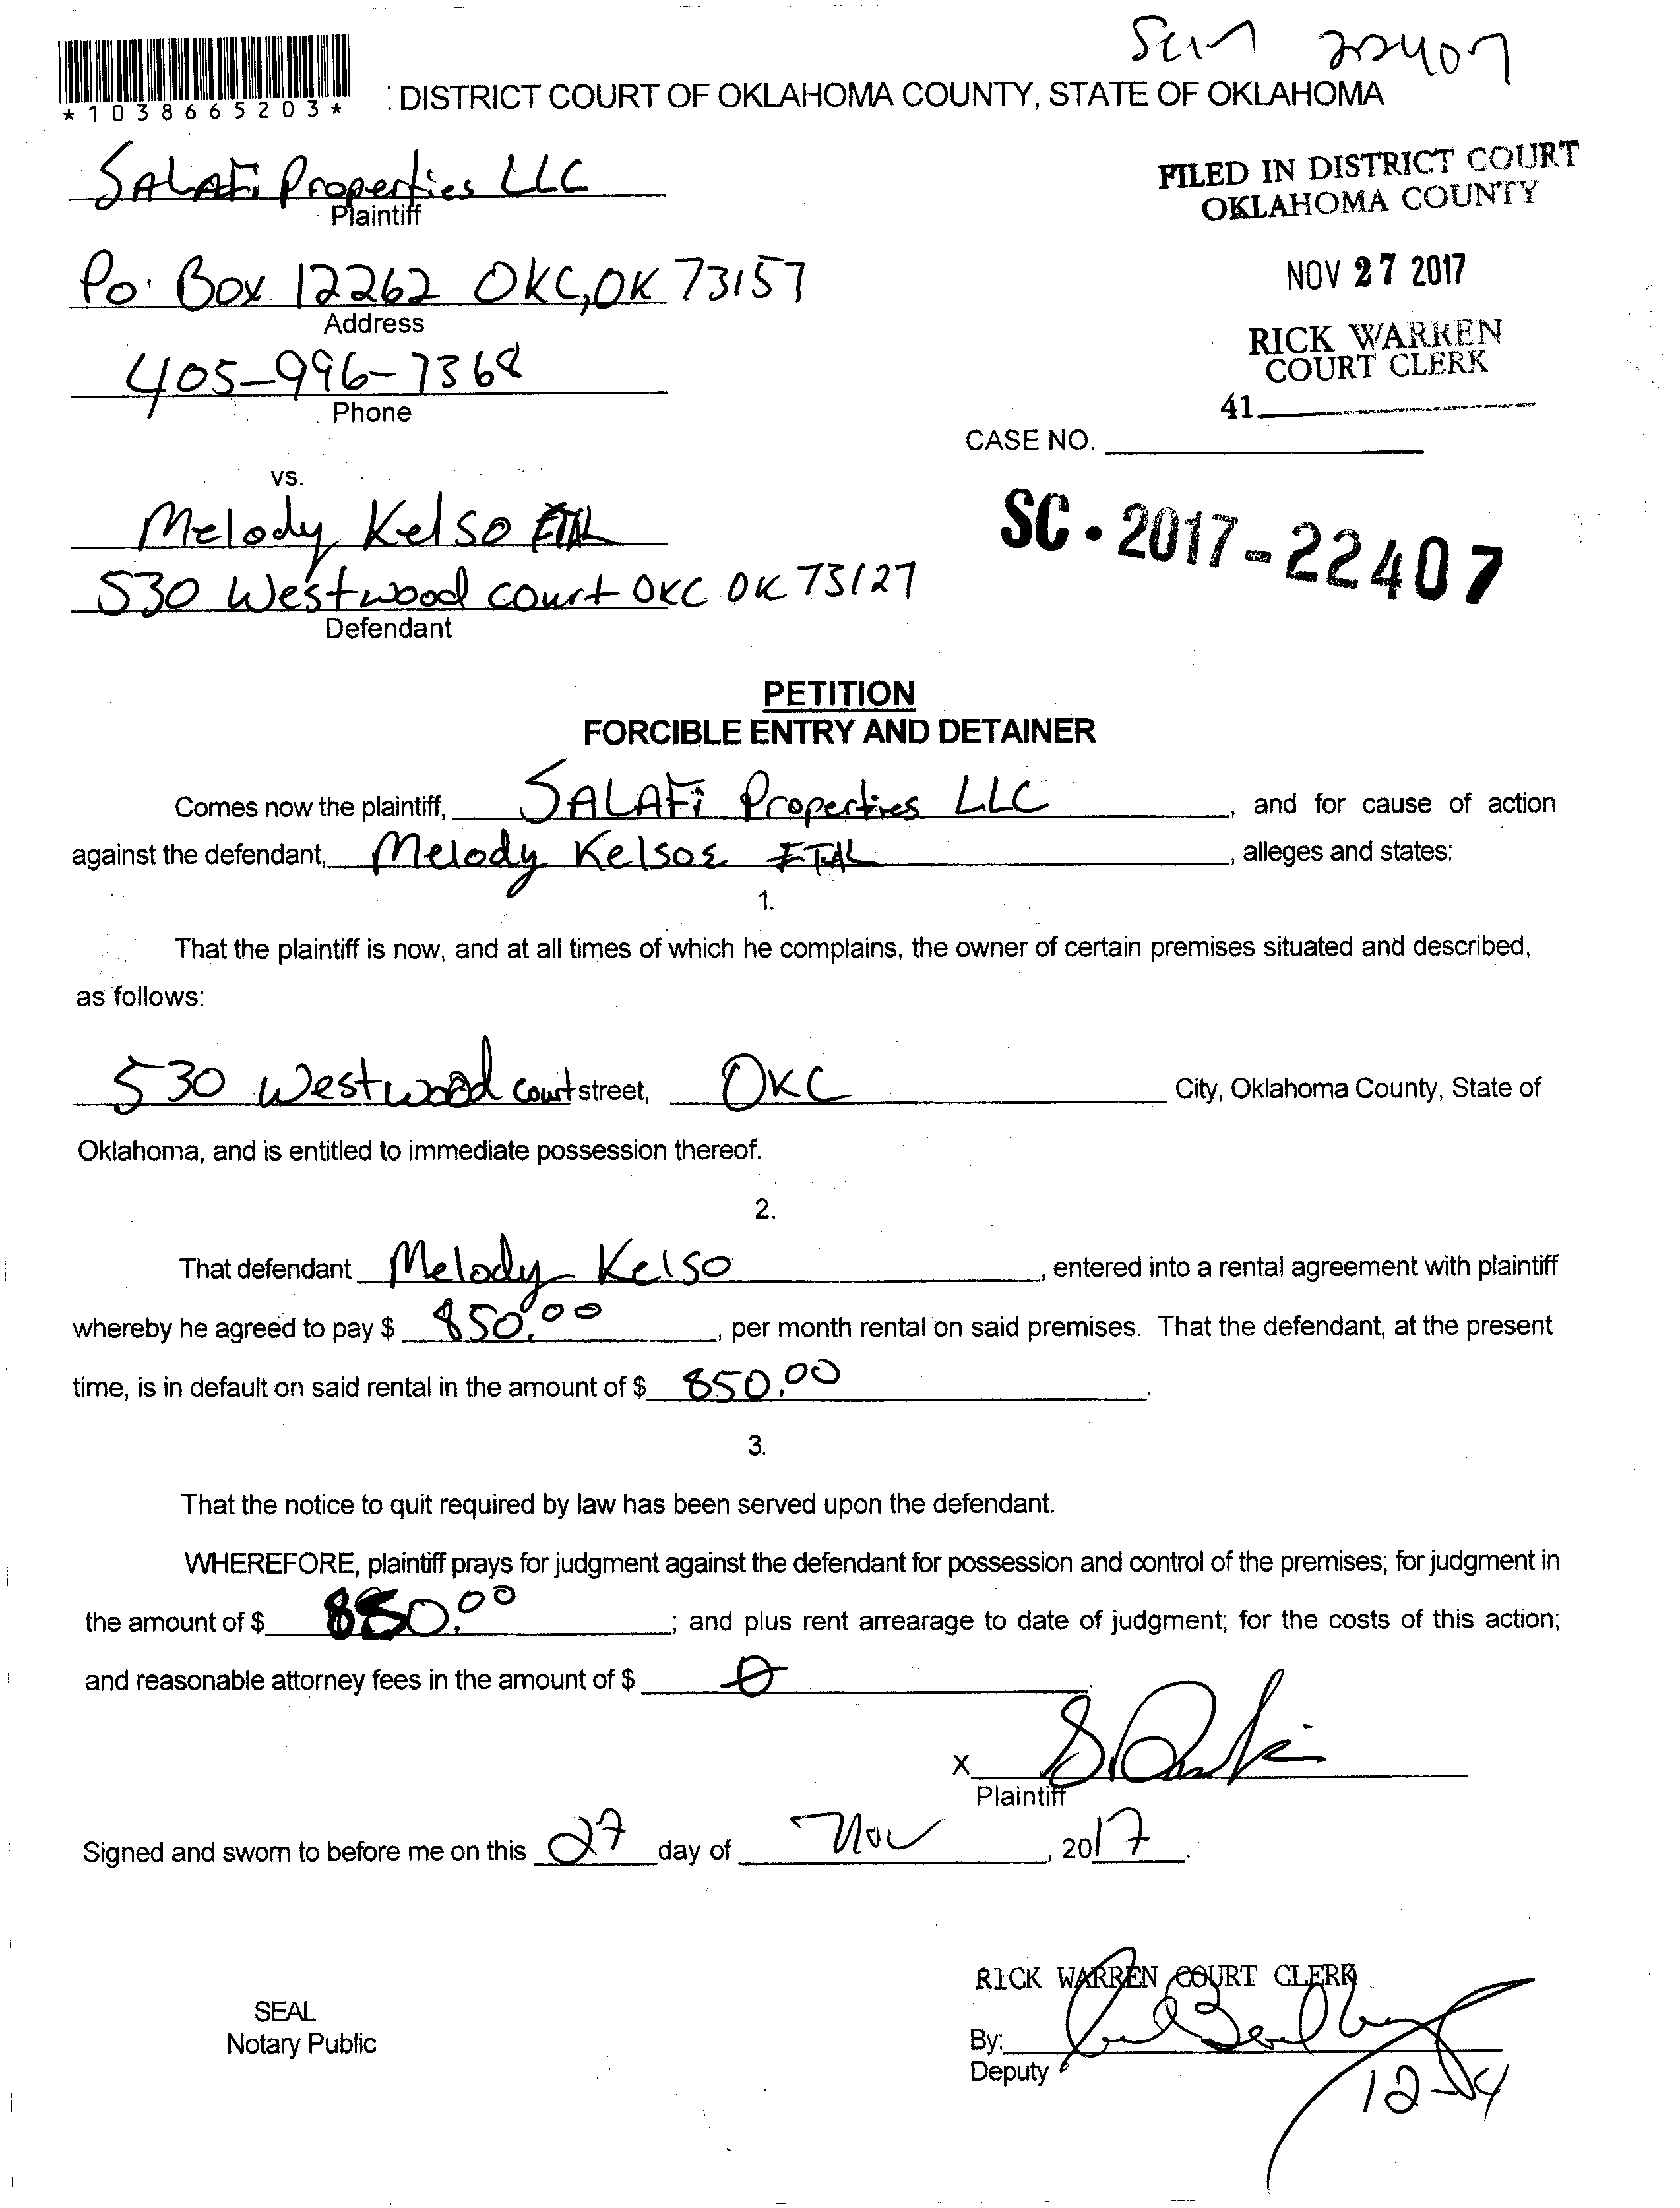 SC17 22407
*1038665203*
: DISTRICT COURT OF OKLAHOMA COUNTY, STATE OF OKLAHOMA
SALAFi Properties LLC
Plaintiff
FILED IN DISTRICT COURT
OKLAHOMA COUNTY
Po. Box 12262 OKC, OK 73157
Address
NOV 27 2017
405-996-7368
Phone
RICK WARREN
COURT CLERK
41
CASE NO.
vs.
Melody Kelso ETAL
SC-2017-22407
530 Westwood court OKC OK 73127
Defendant
PETITION
FORCIBLE ENTRY AND DETAINER
Comes now the plaintiff, SALAFi Properties LLC, and for cause of action
against the defendant, Melody Kelso ETAL, alleges and states:
1.
That the plaintiff is now, and at all times of which he complains, the owner of certain premises situated and described,
as follows:
530 Westwood court street, OKC City, Oklahoma County, State of
Oklahoma, and is entitled to immediate possession thereof.
2.
That defendant Melody Kelso, entered into a rental agreement with plaintiff
whereby he agreed to pay $ 850.00, per month rental on said premises. That the defendant, at the present
time, is in default on said rental in the amount of $ 850.00.
3.
That the notice to quit required by law has been served upon the defendant.
WHEREFORE, plaintiff prays for judgment against the defendant for possession and control of the premises; for judgment in
the amount of $ 850.00; and plus rent arrearage to date of judgment; for the costs of this action;
and reasonable attorney fees in the amount of $ 0.
X
Plaintiff
Signed and sworn to before me on this 27 day of Nov, 2017.
RICK WARREN COURT CLERK
SEAL
Notary Public
By:
Deputy
12-14